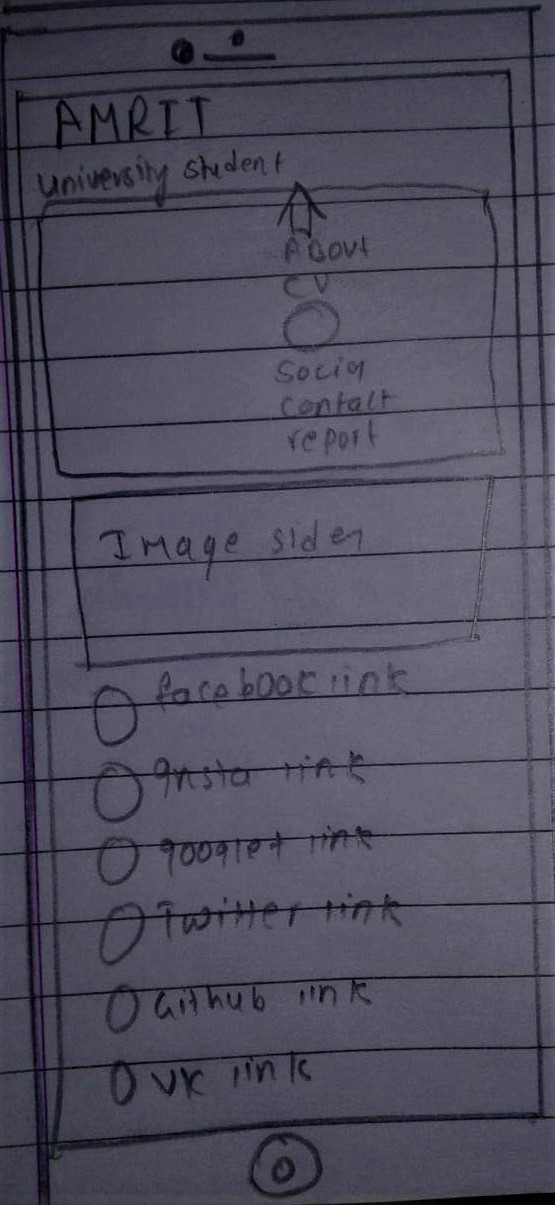 AMRIT
university student
ABOUt
CV
Social
contact
report
Image sider
facebook link
Insta link
google+ link
Twitter link
Github link
VK link